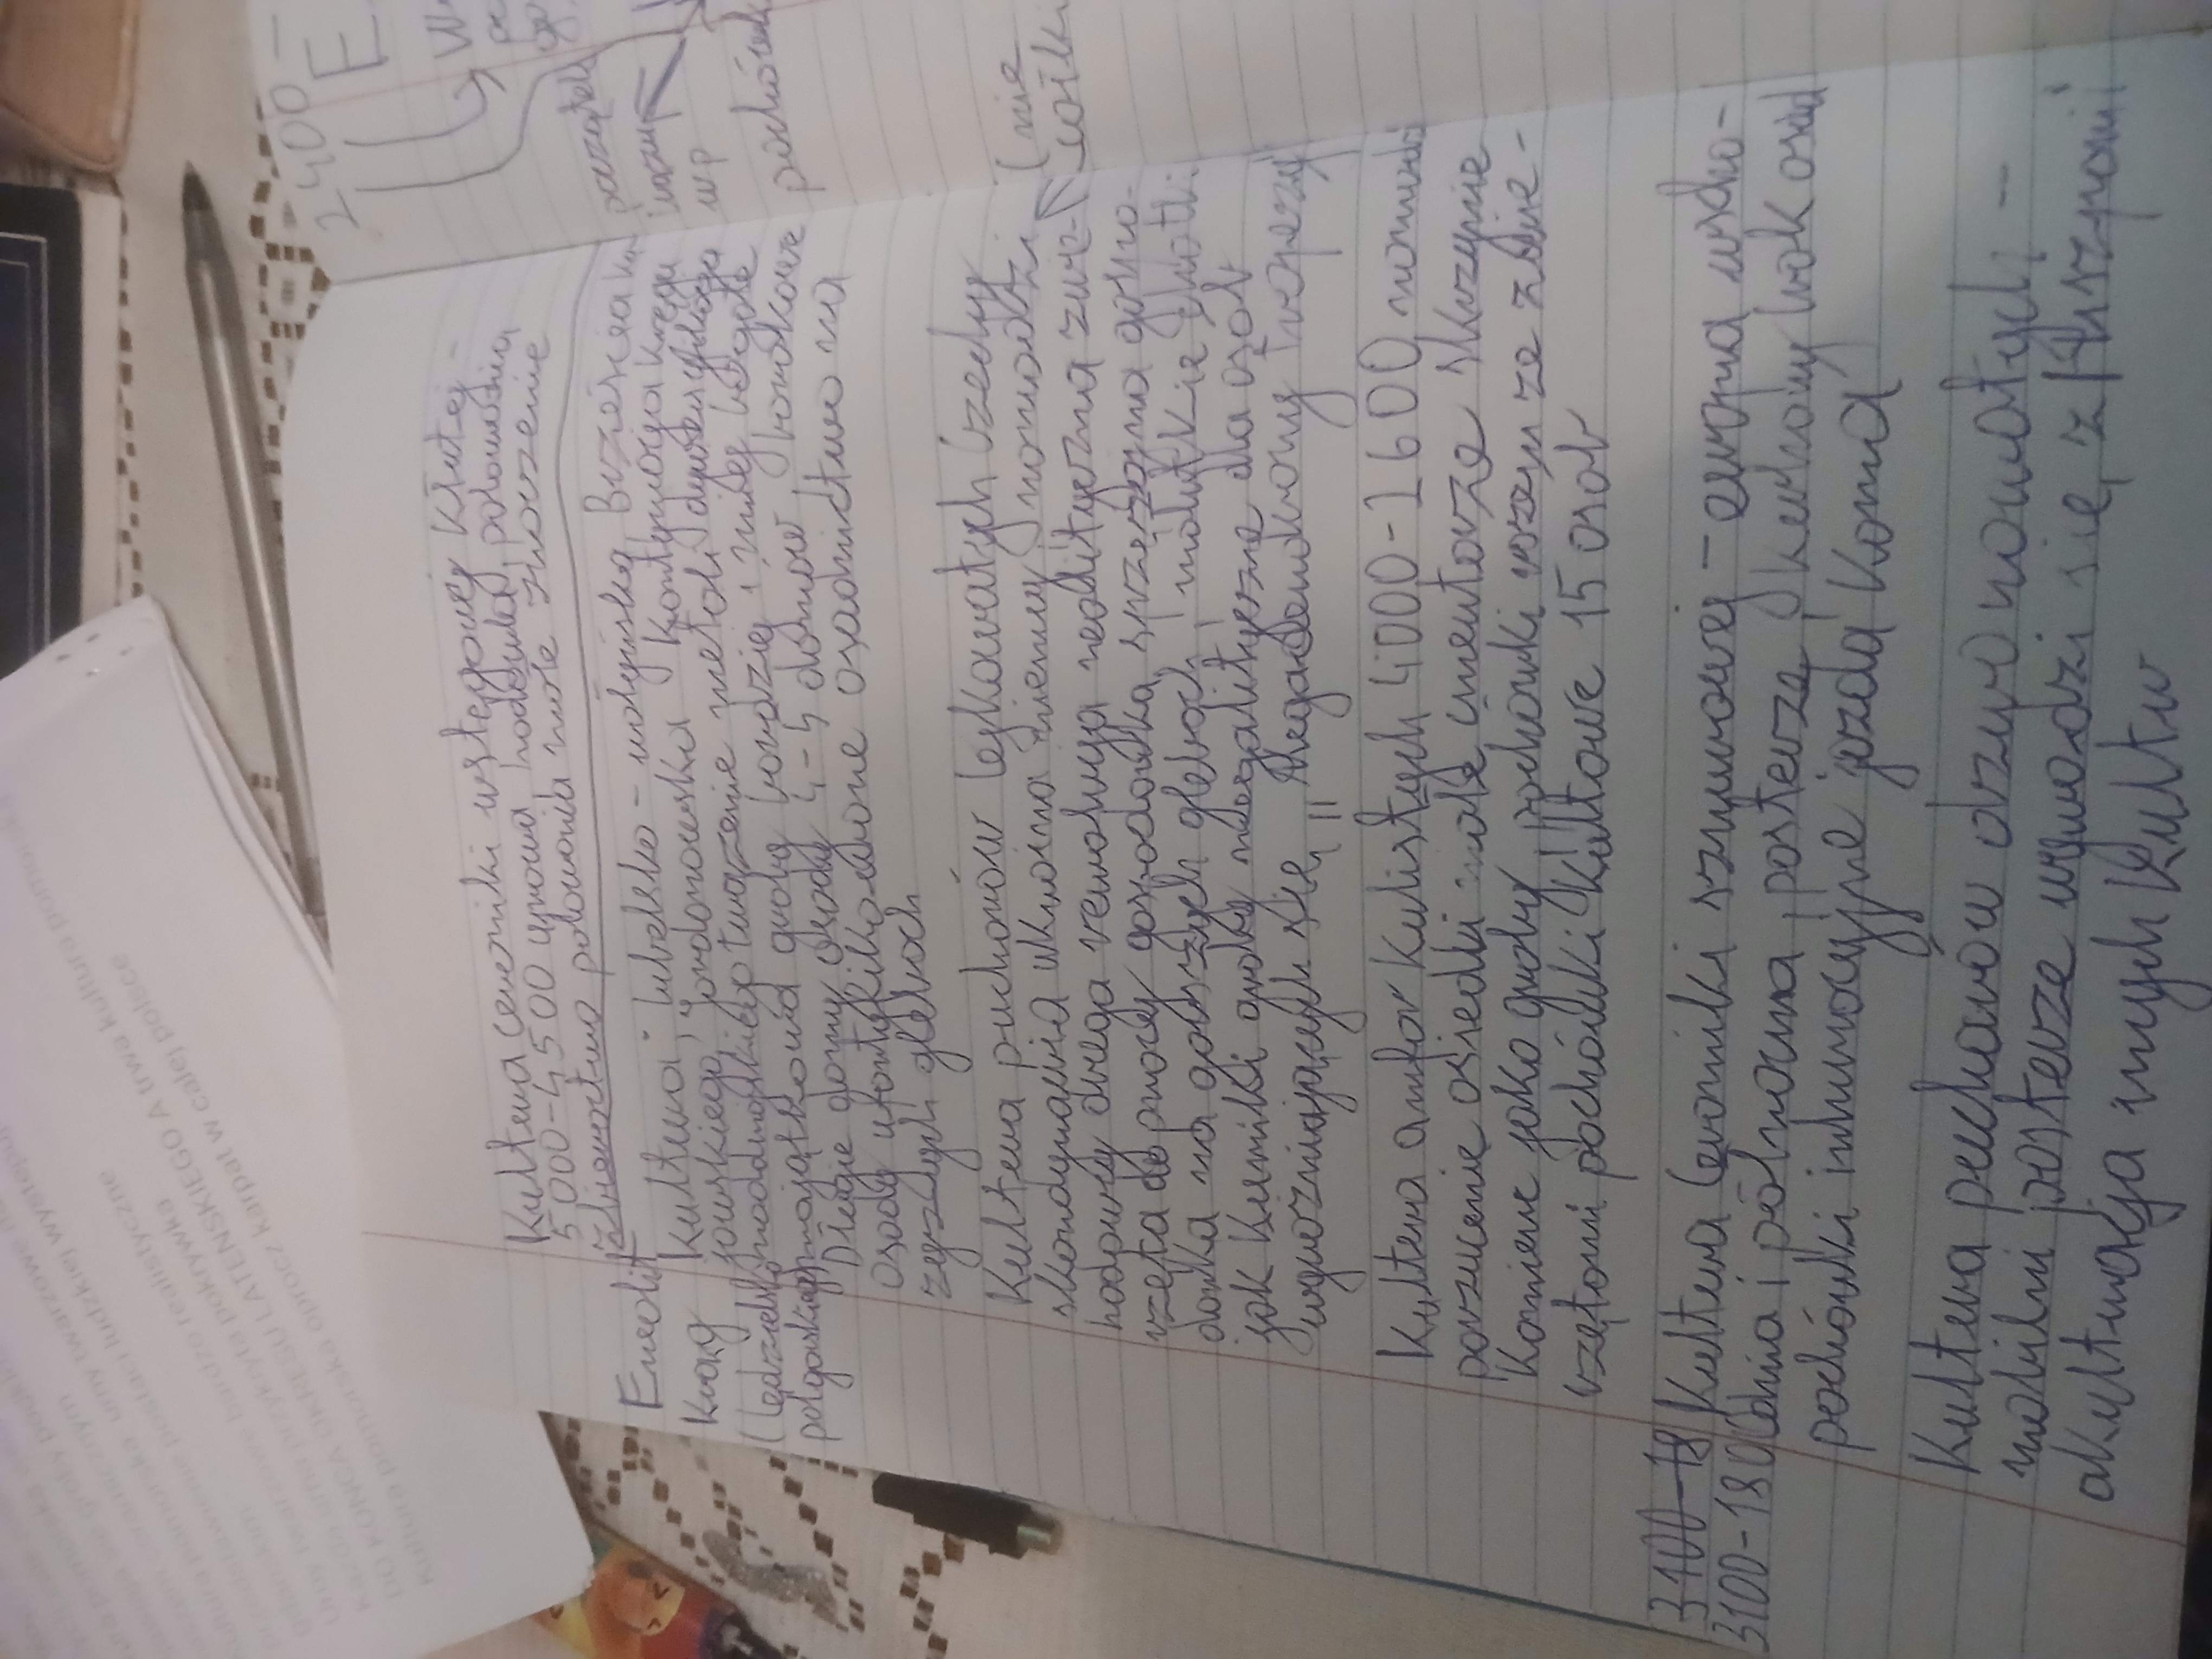 pomorska urny twarzowe
przedstawienie postaci ludzkiej występuj
gdańskim
Urny twarzowe bardzo realistyczne
Każda urna przykryta pokrywka
DO KOŃCA OKRESU LATENSKIEGO A trwa kultura pomorska
Kultura pomorska oprocz karpat w calej polsce
Kultura ceramiki wstęgowej Kłutej -
5000-4500 uprawa, hodowla, polowania
zbieractwo polowania małe znaczenie
Eneolit
Kultura; lubelsko - wołyńska, Brześcia ku-
Krąg
jowskiego, Jordanowska Kontynuacja Kręgu
(lędzielsko
naddunajskiego tworzenie metali dywersyfikacja
polgarskiego)
majątkowa groby bardziej i mniej bogate
Długie domy osady 4-5 domów, barakowe
osady ufortyfikowane osadnictwo na
żyznych glebach
Kultura pucharów lejkowatych Czechy
skandynawia ukraina niemcy, nomadzi
hodowcy druga rewolucja neolityczna zwie-
rzęta do pracy gospodarka sprzężajna gospo-
darka na gorszych glebach, malutkie chatki
jak Kurniki groby megalityczne dla osób
wyróżniających się, "Megadendrony Trapezy
Kultura amfor Kulistych 4000-2600 nomadzi
porzucenie osiedli małe cmentarze skrzynie
Kamienne jako groby, pochówki razem ze zwie-
rzętami pochówki Kultowe 15 osób
3100-18
Kultura Ceramiki sznurowej - europa wscho-
3100-1800
dnia i północna, pasterze, Kurhany brak osad
pochówki inhumacyjne jazda Konna
Kultura pucharów dzwonowatych -
mobilni pasterze wywodzi się z Hiszpanii
akulturacja innych Kultur
2400 -
E
początek
wp
pochówek
(nie